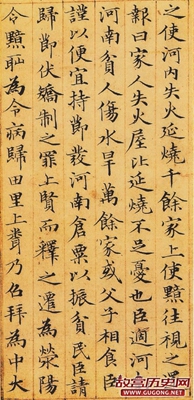 之使河内失火延燒千餘家上使黯往視之還
報曰家人失火屋比延燒不足憂也臣過河
河南貧人傷水旱萬餘家或父子相食臣
謹以便宜持節發河南倉粟以振貧民臣請
歸節伏矯制之罪上賢而釋之遷為滎陽
令黯恥為令病歸田里上聞乃召拜為中大
故宫历史网